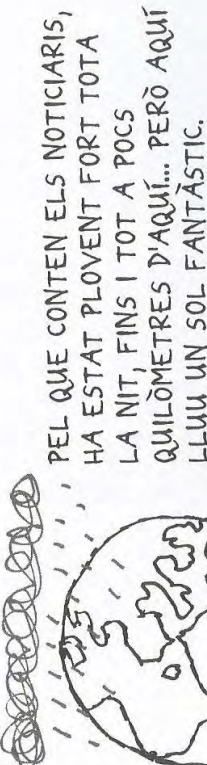 PEL QUE CONTEN ELS NOTICIARIS,
HA ESTAT PLOVENT FORT TOTA
LA NIT, FINS I TOT A POCS
QUILÒMETRES D'AQUÍ... PERÒ AQUÍ
LLUU UN SOL FANTÀSTIC.